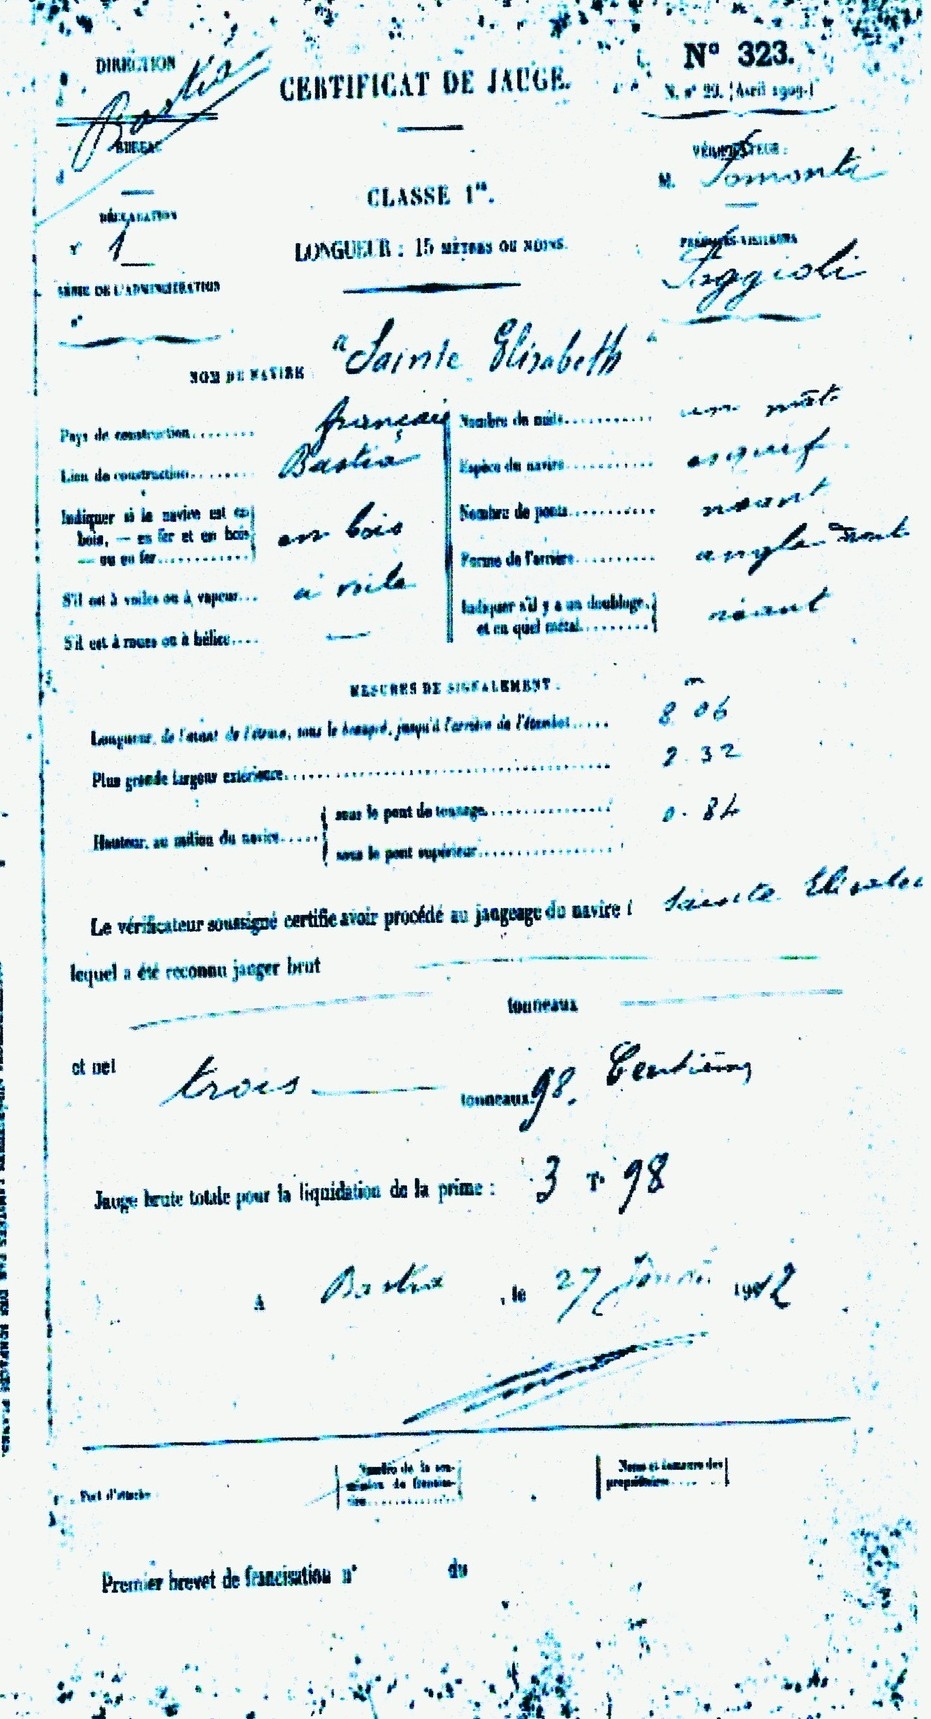 DIRECTION
Bastia
BUREAU
DÉCLARATION
N° 1
SÉRIE DE L'ADMINISTRATION
n°
CERTIFICAT DE JAUGE.
CLASSE 1re.
LONGUEUR : 15 MÈTRES OU MOINS.
N° 323.
N. n° 29. (Avril 1909.)
VÉRIFICATEUR :
M. Tomonti
PRÉPOSÉS-VISITEURS
Poggioli
NOM DE NAVIRE "Sainte Elisabeth"
Pays de construction........ français
Lieu de construction........ Bastia
Indiquer si le navire est en
bois, — en fer et en bois
— ou en fer............ en bois
S'il est à voiles ou à vapeur... à voile
S'il est à roues ou à hélice.... —
Nombre de mâts............ un mât
Espèce du navire............ esquif
Nombre de ponts............ néant
Forme de l'arrière........... angle droit
Indiquer s'il y a un doublage,
et en quel métal.......... néant
MESURES DE SIGNALEMENT.
m
Longueur, de l'avant de l'étrave, sous le beaupré, jusqu'à l'arrière de l'étambot..... 8.06
Plus grande largeur extérieure............ 2.32
Hauteur, au milieu du navire.....
sous le pont de tonnage............ 0.84
sous le pont supérieur............
Le vérificateur soussigné certifie avoir procédé au jaugeage du navire l Sainte Elisabeth
lequel a été reconnu jauger brut
tonneaux
et net trois — tonneaux 98. Centièmes
Jauge brute totale pour la liquidation de la prime : 3 Tx 98
A Bastia, le 27 1912
Port d'attache
Numéro de la sou-
mission de francisa-
tion............
Noms et demeure des
propriétaires.....
Premier brevet de francisation n° du